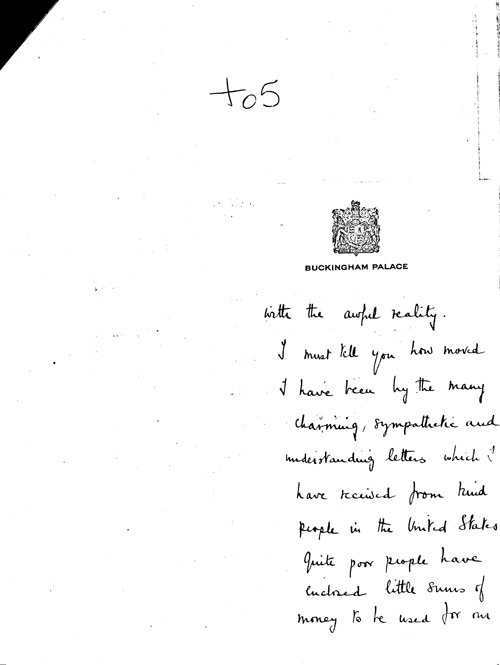 to5
BUCKINGHAM PALACE
with the awful reality.
I must tell you how moved
I have been by the many
charming, sympathetic and
understanding letters which I
have received from kind
people in the United States
Quite poor people have
enclosed little sums of
money to be used for our